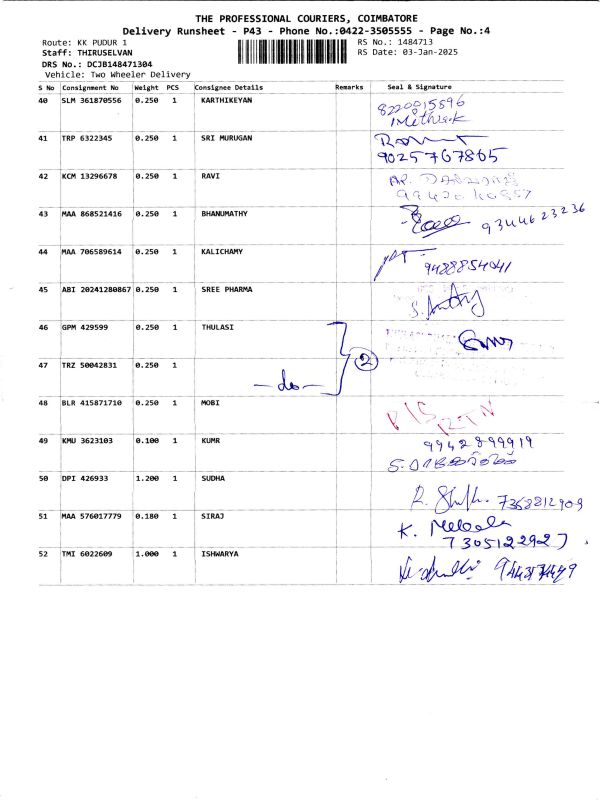 THE PROFESSIONAL COURIERS, COIMBATORE
Delivery Runsheet - P43 - Phone No.:0422-3505555 - Page No.:4
Route: KK PUDUR 1 RS No.: 1484713
Staff: THIRUSELVAN RS Date: 03-Jan-2025
DRS No.: DCJB148471304
Vehicle: Two Wheeler Delivery
S No Consignment No Weight PCS Consignee Details Remarks Seal & Signature
40 SLM 361870556 0.250 1 KARTHIKEYAN 8220015896
Mithvek
41 TRP 6322345 0.250 1 SRI MURUGAN
9025767865
42 KCM 13296678 0.250 1 RAVI
43 MAA 868521416 0.250 1 BHANUMATHY 9344623236
44 MAA 706589614 0.250 1 KALICHAMY 9488854041
45 ABI 20241280867 0.250 1 SREE PHARMA
46 GPM 429599 0.250 1 THULASI
47 TRZ 50042831 0.250 1 -do- 2
48 BLR 415871710 0.250 1 MOBI P/S RTN
49 KMU 3623103 0.100 1 KUMR 9942899919
50 DPI 426933 1.200 1 SUDHA 7358812909
51 MAA 576017779 0.180 1 SIRAJ K. Mebala
7305122927
52 TMI 6022609 1.000 1 ISHWARYA